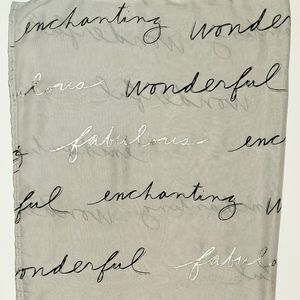 enchanting wonder
lous wonderful
fabulous enc
ful enchanting w
onderful fabul